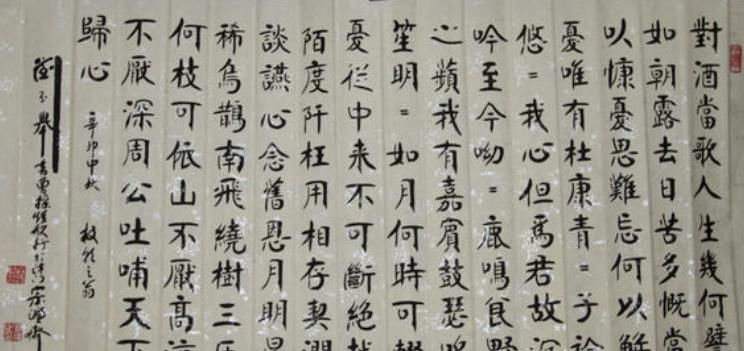 對酒當歌人生幾何譬
如朝露去日苦多慨當
以慷憂思難忘何以解
憂唯有杜康青=子衿
悠=我心但為君故沉
吟至今呦=鹿鳴食野
之蘋我有嘉賓鼓瑟吹
笙明=如月何時可掇
憂從中来不可斷絕越
陌度阡枉用相存契濶
談讌心念舊恩月明星
稀烏鵲南飛繞樹三匝
何枝可依山不厭高
不厭深周公吐哺天下
歸心
辛卯中秋